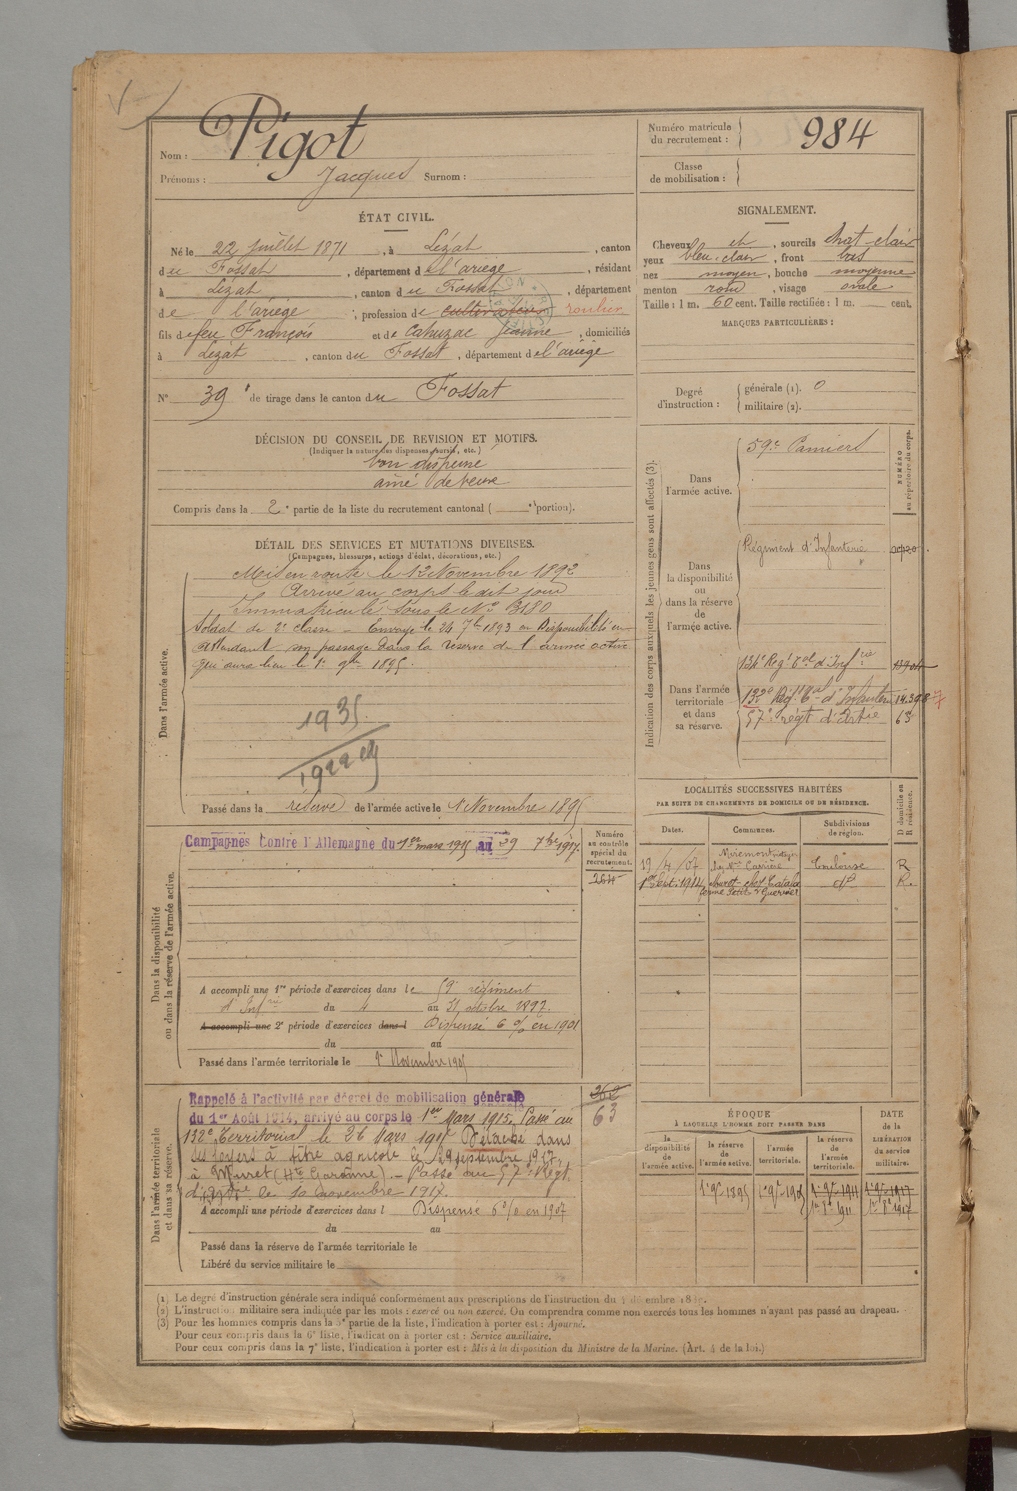 Nom : Pigot
Prénoms : Jacques Surnom :
Numéro matricule du recrutement : 984
Classe de mobilisation :
ÉTAT CIVIL.
Né le 22 juillet 1871, à Lézat, canton
du Fossat, département de l'ariège, résidant
à Lézat, canton du Fossat, département
de l'ariège, profession de cultivateur roulier
fils de feu François et de Cahuzac Jeanne, domiciliés
à Lézat, canton du Fossat, département de l'ariège
N° 39 de tirage dans le canton du Fossat
SIGNALEMENT.
Cheveux et, sourcils chat-clair
yeux bleu-clair, front bas
nez moyen, bouche moyenne
menton rond, visage ovale
Taille : 1 m. 60 cent. Taille rectifiée : 1 m. cent.
MARQUES PARTICULIÈRES :
Degré d'instruction : générale (1). 0
militaire (2).
DÉCISION DU CONSEIL DE REVISION ET MOTIFS.
(Indiquer la nature des dispenses, sursis, etc.)
bon dispensé
aîné de veuve
Compris dans la 2e partie de la liste du recrutement cantonal ( portion).
DÉTAIL DES SERVICES ET MUTATIONS DIVERSES.
(Campagnes, blessures, actions d'éclat, décorations, etc.)
Dans l'armée active.
Mis en route le 12 Novembre 1892
Arrivé au corps le dit jour
Immatriculé sous le N° 3180
Soldat de 2e classe - Envoyé le 24 7bre 1893 en Disponibilité en
attendant son passage dans la réserve de l'armée active
qui aura lieu le 1er 9bre 1895.
1935
1922
Passé dans la réserve de l'armée active le 1 Novembre 1895
Dans la disponibilité ou dans la réserve de l'armée active.
Campagnes Contre l'Allemagne du 1er mars 1915 au 29 7bre 1917.
Numéro au contrôle spécial du recrutement.
A accompli une 1re période d'exercices dans le 59e régiment
d'Infrie du 4 au 31 octobre 1897.
A accompli une 2e période d'exercices dans l Dispensé 6 % en 1901
du au
Passé dans l'armée territoriale le 1er Novembre 1905
Dans l'armée territoriale et dans sa réserve.
Rappelé à l'activité par décret de mobilisation générale
du 1er Août 1914, arrivé au corps le 1er Mars 1915. Passé au
132e Territorial le 26 Mars 1915 Détaché dans
ses foyers à titre agricole le 29 septembre 1917,
à Muret (Hte Garonne). - Passé au 57e Régt
d'Artie le 10 novembre 1917.
63
A accompli une période d'exercices dans l Dispensé 6 % en 1907
du au
Passé dans la réserve de l'armée territoriale le
Libéré du service militaire le
Indication des corps auxquels les jeunes gens sont affectés (3).
NUMÉRO au répertoire du corps.
Dans l'armée active.
59e Pamiers
Dans la disponibilité ou dans la réserve de l'armée active.
Régiment d'Infanterie
Dans l'armée territoriale et dans sa réserve.
134e Régt Tal d'Infrie
132e Régt Tal d'Infanterie 14.398
57e régt d'Artie 63
LOCALITÉS SUCCESSIVES HABITÉES
PAR SUITE DE CHANGEMENTS DE DOMICILE OU DE RÉSIDENCE.
Dates. Communes. Subdivisions de région. D domicile ou R résidence.
19/4/07 Miremont Carrière Toulouse R
1er Sept. 1914 Muret - chez Catala ferme Petit Guerrier do R.
ÉPOQUE
À LAQUELLE L'HOMME DOIT PASSER DANS
DATE de la LIBÉRATION du service militaire.
la disponibilité de l'armée active. la réserve de l'armée active. l'armée territoriale. la réserve de l'armée territoriale.
1er 9bre 1895 1er 9bre 1905 1er 9bre 1911 1er 9bre 1917
1er 8bre 1911 1er 8bre 1917
(1) Le degré d'instruction générale sera indiqué conformément aux prescriptions de l'instruction du 4 décembre
(2) L'instruction militaire sera indiquée par les mots : exercé ou non exercé. On comprendra comme non exercés tous les hommes n'ayant pas passé au drapeau.
(3) Pour les hommes compris dans la 5e partie de la liste, l'indication à porter est : Ajourné.
Pour ceux compris dans la 6e liste, l'indication à porter est : Service auxiliaire.
Pour ceux compris dans la 7e liste, l'indication à porter est : Mis à la disposition du Ministre de la Marine. (Art. 4 de la loi.)